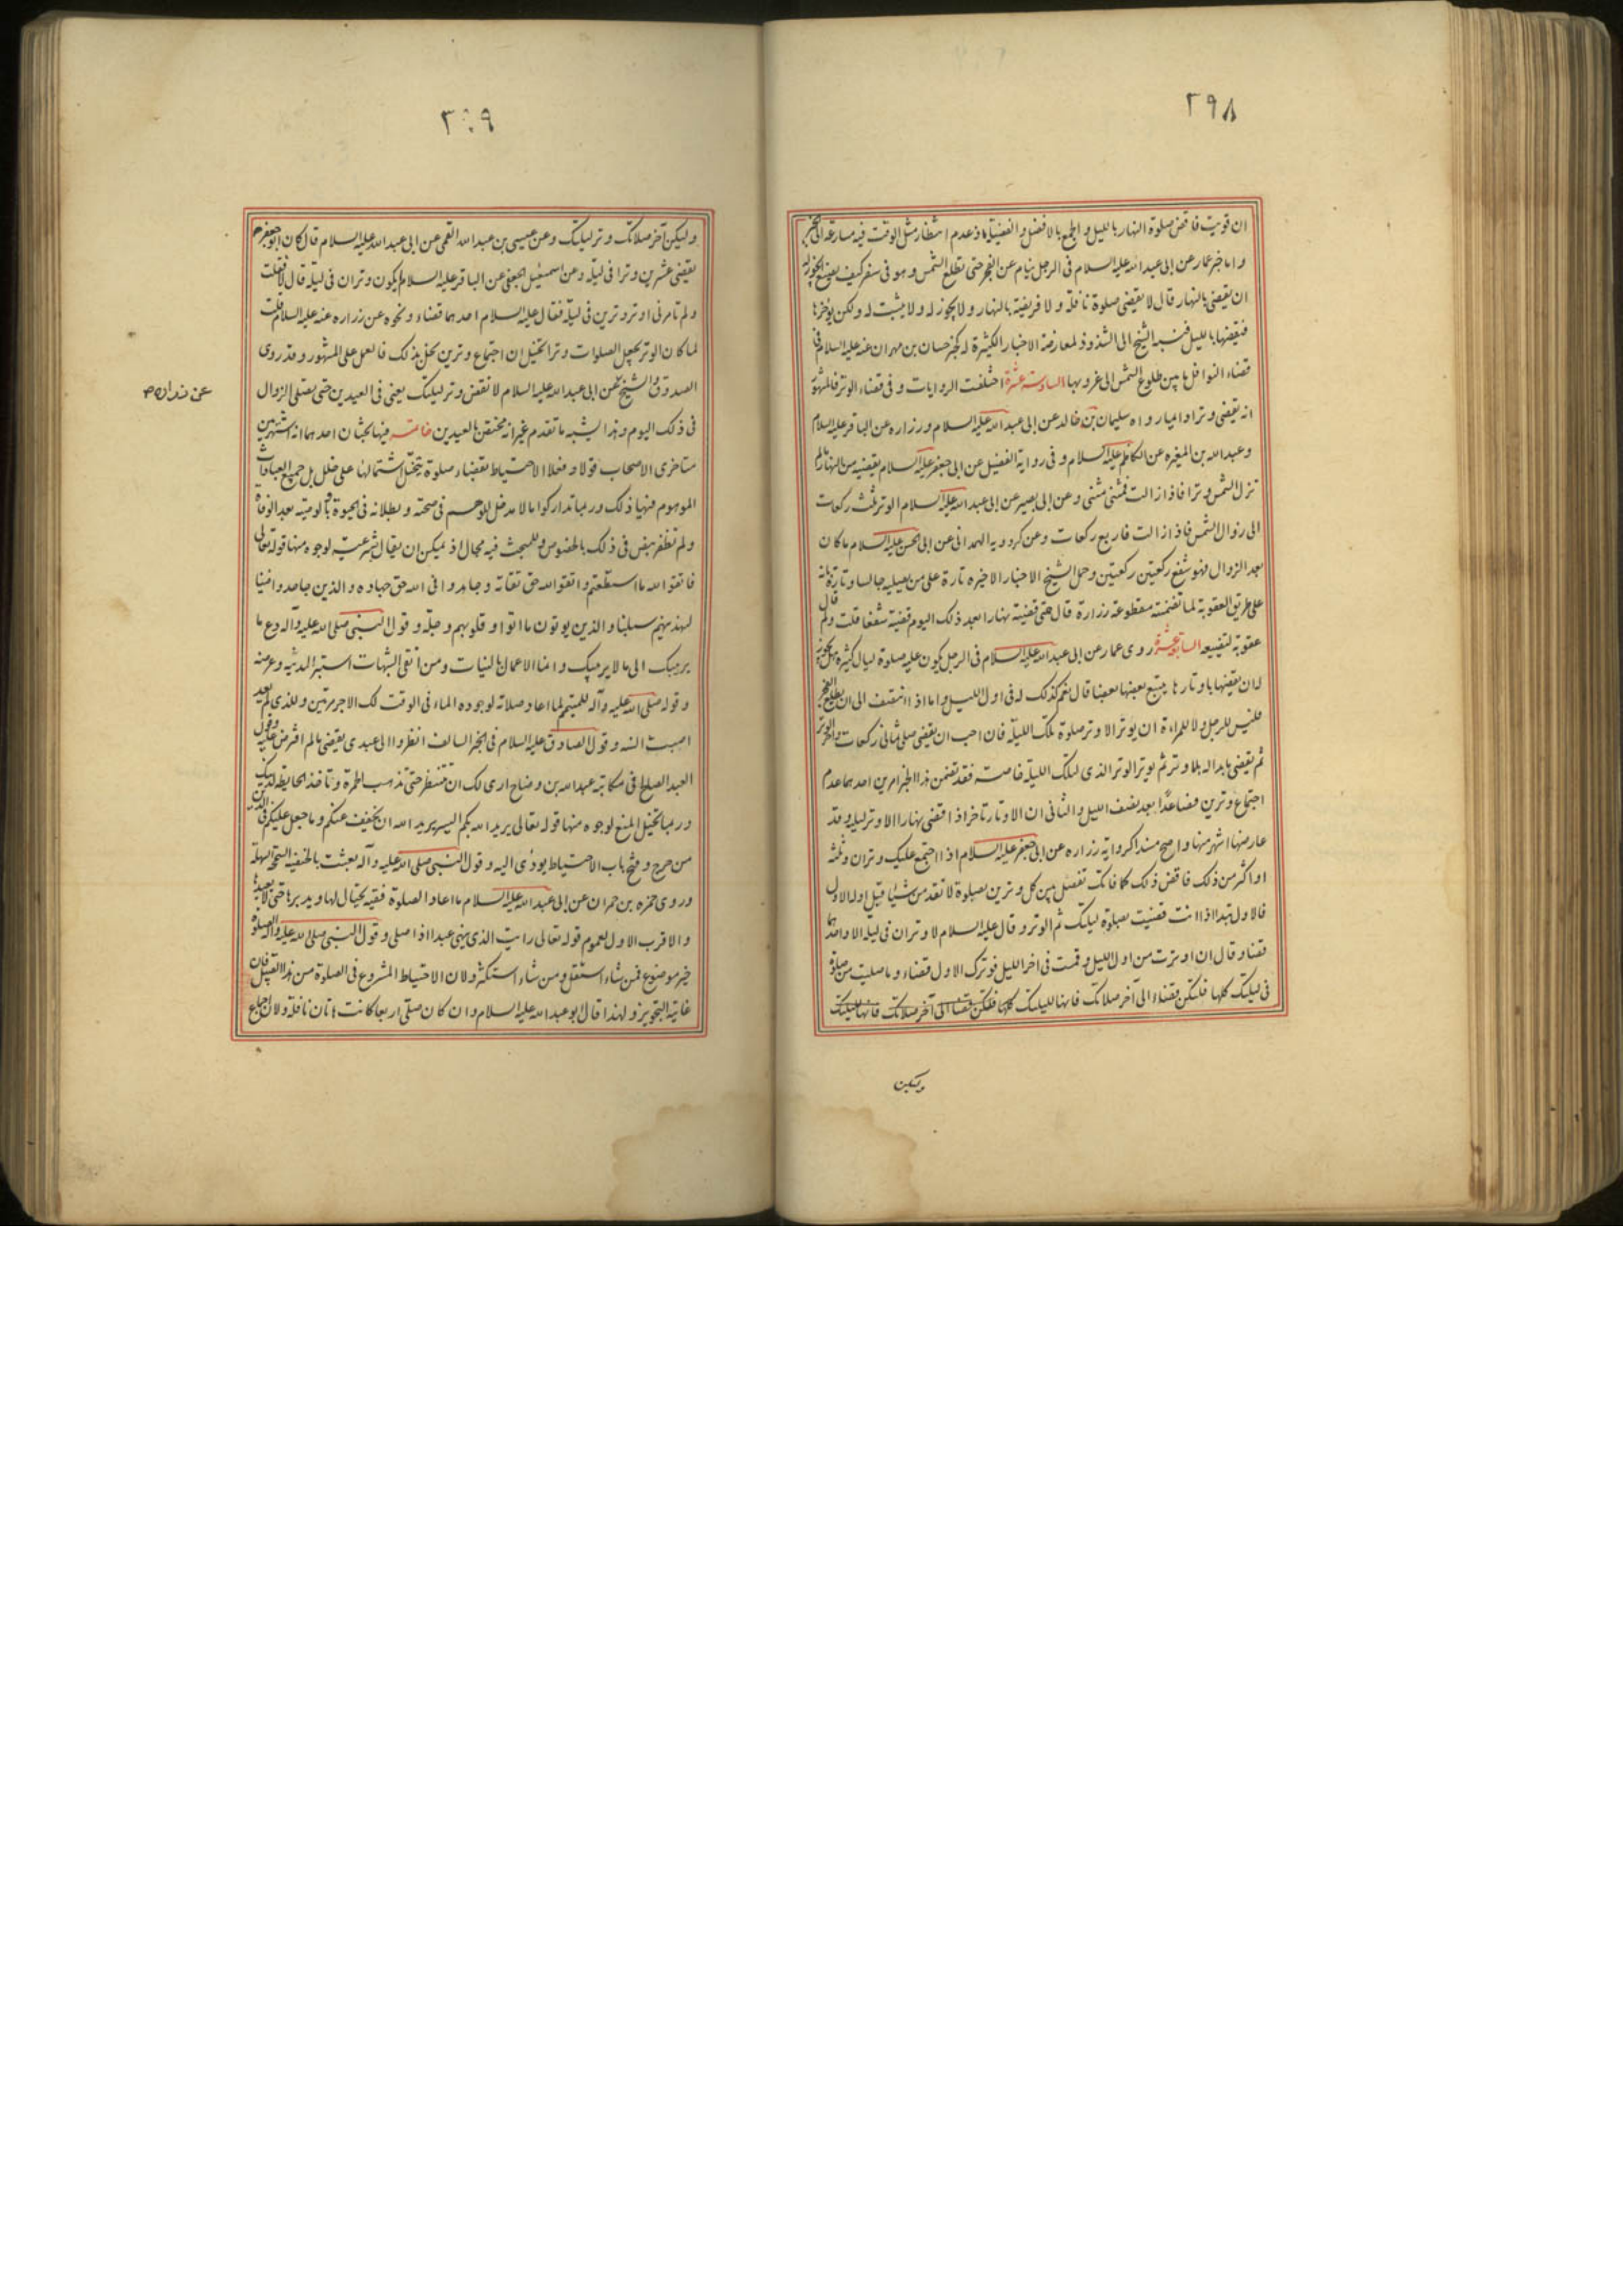 ٢٩٨
ان قويت فاقض صلوة النهار بالليل والجمع بالافضل والفضيلة اذ عدم انتظار مثل الوقت فيه مسارعة الى الخير
واما خبر عمار عن ابى عبد الله عليه السلام فى الرجل ينام عن الفجر حتى تطلع الشمس وهو فى سفر كيف يصنع ايجوز له
ان يقضى بالنهار قال لا يقضى صلوة نافلة ولا فريضة بالنهار ولا يجوز له ولا يثبت له ولكن يؤخرها
فيقضيها بالليل فنسبه الشيخ الى الشذوذ لمعارضة الاخبار الكثيرة له كخبر حسان بن مهران عنه عليه السلام فى
قضاء النوافل ما بين طلوع الشمس الى غروبها السادسة عشرة اختلفت الروايات فى قضاء الوتر فالمشهور
انه يقضى وترا وامارواه سليمان بن خالد عن ابى عبد الله عليه السلام وزراره عن الباقر عليه السلام
وعبد الله بن المغيره عن الكاظم عليه السلام وفى رواية الفضيل عن ابى جعفر عليه السلام يقضيه من النهار مالم
تزل الشمس وترا فاذا زالت فمثنى مثنى وعن ابى بصير عن ابى عبد الله عليه السلام الوتر ثلث ركعات
الى زوال الشمس فاذا زالت فاربع ركعات وعن كردويه الهمدانى عن ابى الحسن عليه السلام ما كان
بعد الزوال فهو شفع ركعتين ركعتين وحمل الشيخ الاخبار الاخيره تارة على من يصليه جالسا وتارة بانه
على طريق العقوبة لما تضمنته مقطوعة زرارة قال متى قضيته نهارا بعد ذلك اليوم قضيته شفعا قلت ولم قال
عقوبة لتضييعه السابعة عشرة روى عمار عن ابى عبد الله عليه السلام فى الرجل يكون عليه صلوة ليال كثيرة هل يجوز
له ان يقضيها باوتارها يتبع بعضها بعضا قال نعم كذلك له فى اول الليل واما اذا انتصف الى ان يطلع الفجر
فليس للرجل ولا للمراة ان يوتر الا وتر صلوة تلك الليلة فان احب ان يقضى صلى ثمانى ركعات واخر الوتر
ثم يقضى ما بدا له بلا وتر ثم يوتر الوتر الذى لتلك الليلة خاصة فقد تضمن هذا الخبر امرين احدهما عدم
اجتماع وترين فصاعدًا بعد نصف الليل والثانى ان الاوتار تاخر اذا قضى نهارا الا وتر ليله وقد
عارضها اشهر منها واصح سندا كرواية زراره عن ابى جعفر عليه السلام اذا اجتمع عليك وتران وثلثة
او اكثر من ذلك فاقض ذلك كما فاتك تفصل بين كل وترين بصلوة لا تقدمن شيئا قبل اوله الاول
فالاول تبدا اذا انت قضيت بصلوة ليلتك ثم الوتر وقال عليه السلام لا وتران فى ليلة الا واحدهما
قضاء وقال ان اوترت من اول الليل وقمت فى اخر الليل فوترك الاول قضاء وما صليت من صلوة
فى ليلتك كلها فلتكن قضاء الى آخر صلاتك فانها لليلتك كلها فلتكن قضاء الى آخر صلاتك فانها لليلتك
وليكن
٢٩٩
وليكن آخر صلاتك وتر ليلتك وعن عيسى بن عبد الله القمى عن ابى عبد الله عليه السلام قال كان ابو جعفر
يقضى عشرين وترا فى ليلة وعن اسمعيل الجعفى عن الباقر عليه السلام ايكون وتران فى ليلة قال لا فقلت
ولم تامرنى اوتر وترين فى ليلة فقال عليه السلام احدهما قضاء ونحوه عن زراره عنه عليه السلام قلت
لما كان الوتر يجعل الصلوات وترا تخيل ان اجتماع وترين يخل بذلك فالعمل على المشهور وقد روى
الصدوق والشيخ عن ابى عبد الله عليه السلام لا تقض وتر ليلتك يعنى فى العيدين حتى تصلى الزوال
عن زراره
فى ذلك اليوم وهذا يشبه ما تقدم غير انه مختص بالعيدين خاتمة فيها بحثان احدهما انه اشتهر بين
متاخرى الاصحاب قولا وفعلا الاحتياط بقضاء صلوة يتخيل اشتمالها على خلل بل جميع العبادات
الموهوم فيها ذلك وربما تداركوا ما لا مدخل للوهم فى صحته وبطلانه فى الحيوة وبالوصية بعد الوفاة
ولم نظفر بنص فى ذلك بالخصوص وللبحث فيه مجال اذ يمكن ان يقال بشرعيته لوجوه منها قوله تعالى
فاتقوا الله ما استطعتم واتقوا الله حق تقاته وجاهدوا فى الله حق جهاده والذين جاهدوا فينا
لنهدينهم سبلنا والذين يوتون ما اتوا وقلوبهم وجلة وقول النبى صلى الله عليه وآله دع ما
يريبك الى ما لا يريبك وانما الاعمال بالنيات ومن اتقى الشبهات استبرا لدينه وعرضه
وقوله صلى الله عليه وآله للمتيمم لما اعاد صلاته لوجوده الماء فى الوقت لك الاجر مرتين وللذى لم يعد
اصبت السنه وقول الصادق عليه السلام فى الخبر السالف انظروا الى عبدى يقضى مالم افترض عليه وقول
العبد الصالح فى مكاتبة عبد الله بن وضاح ارى لك ان تنتظر حتى تذهب الحمرة وتاخذ الحايطة لدينك
وربما تخيل المنع لوجوه منها قوله تعالى يريد الله بكم اليسر يريد الله ان يخفف عنكم وما جعل عليكم فى الدين
من حرج وفتح باب الاحتياط يودى اليه وقول النبى صلى الله عليه وآله بعثت بالحنيفية السمحة السهلة
وروى حمزه بن حمران عن ابى عبد الله عليه السلام ما اعاد الصلوة فقيه يحتال لها ويدبرها حتى لا يعيدها
والاقرب الاول لعموم قوله تعالى ارايت الذى ينهى عبدا اذا صلى وقول النبى صلى الله عليه وآله الصلوة
خير موضوع فمن شاء استقل ومن شاء استكثر ولان الاحتياط المشروع فى الصلوة من هذا القبيل فان
غايته التجويز ولهذا قال ابو عبد الله عليه السلام وان كان صلى اربعا كانت هاتان نافلة ولان اجماع